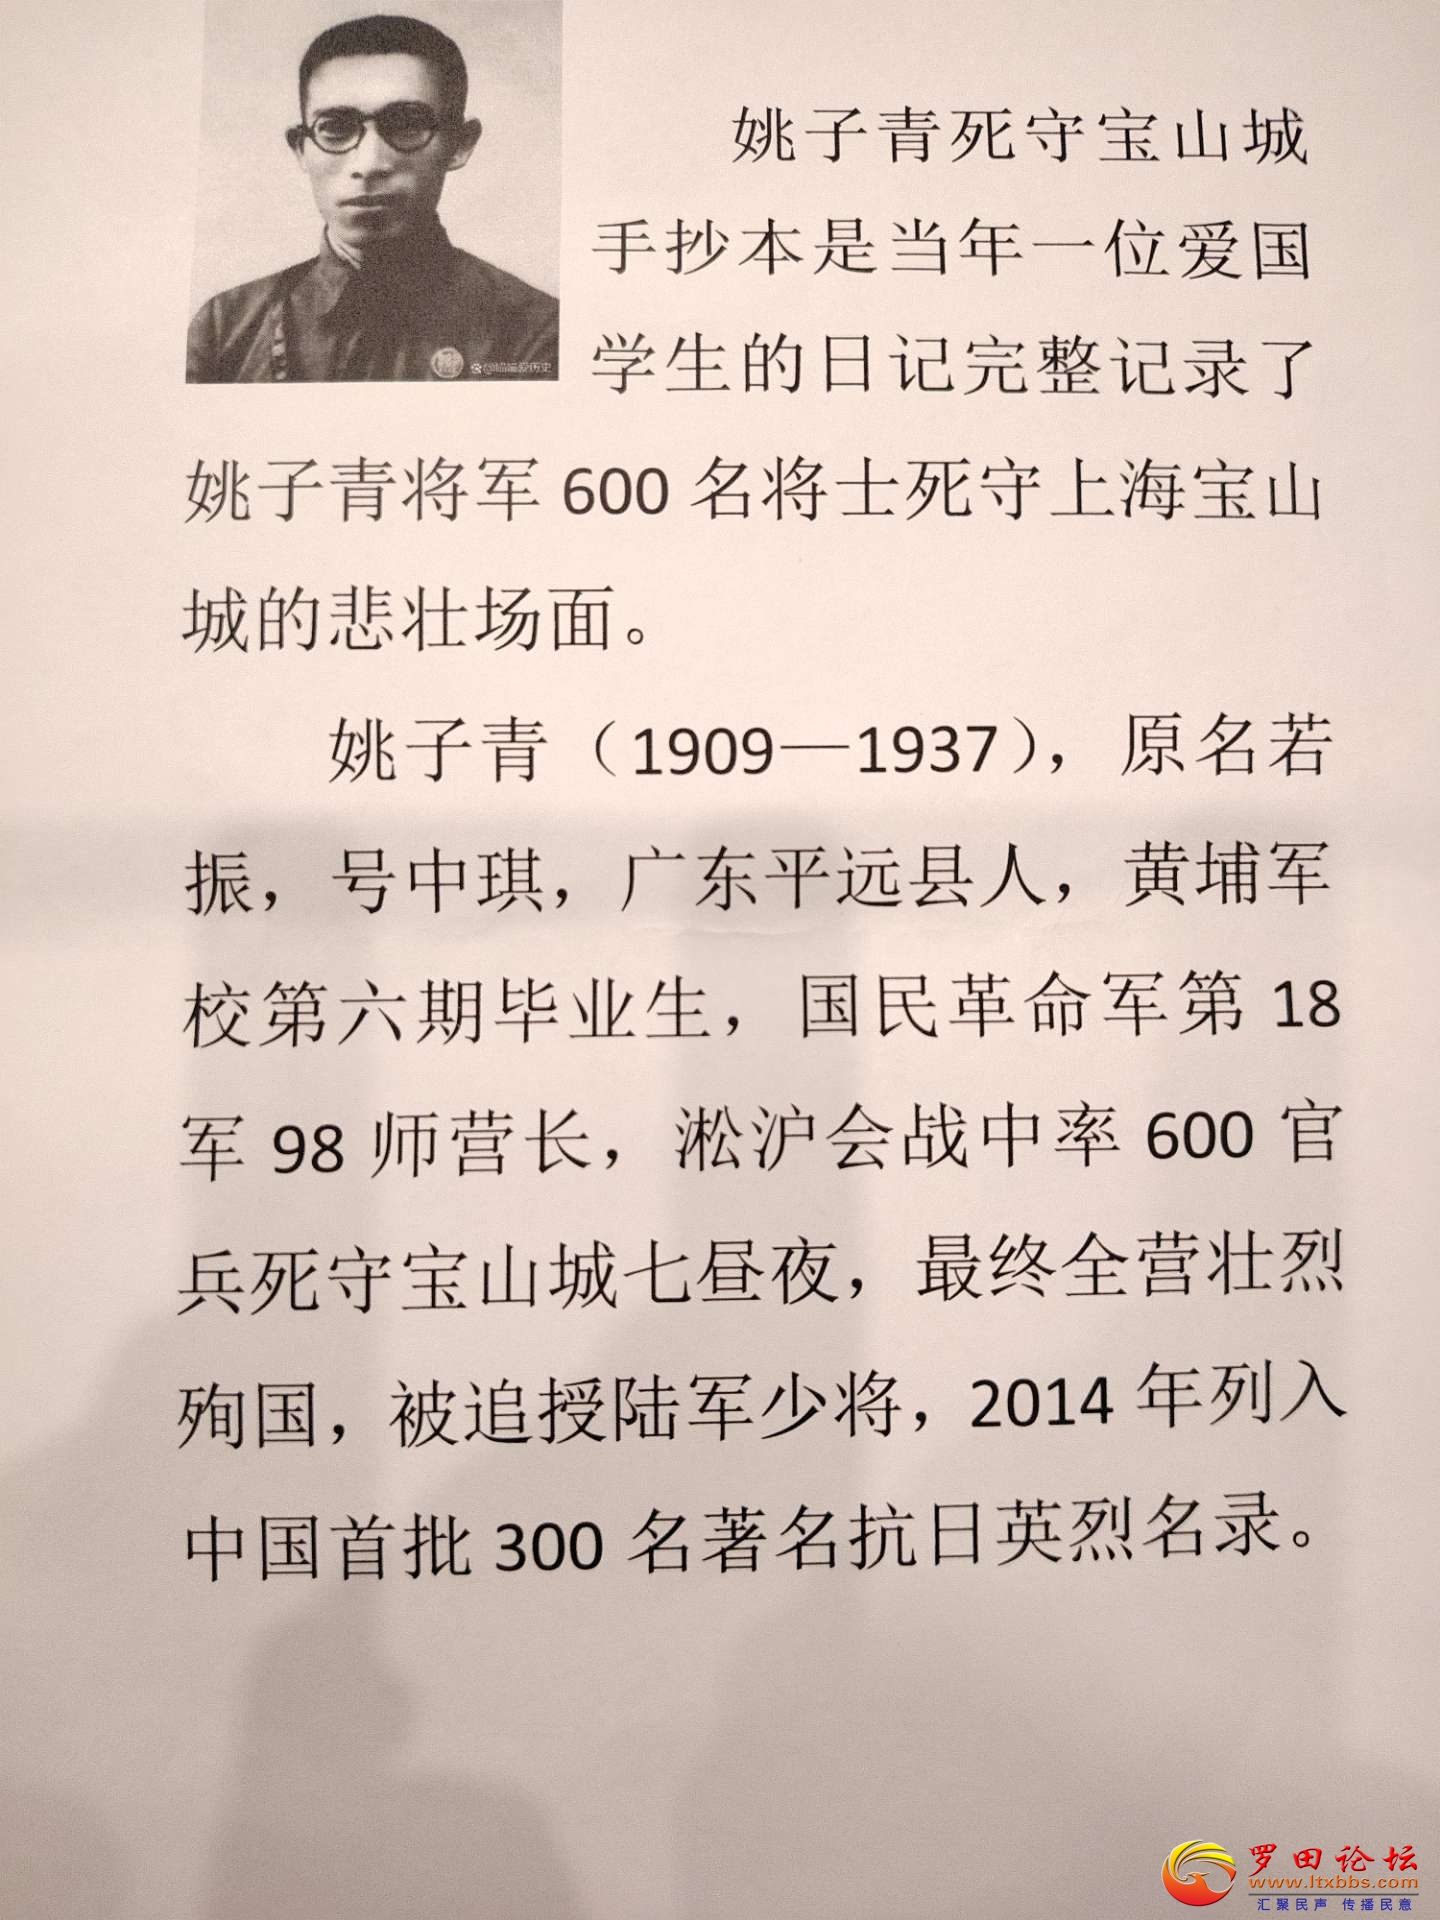 姚子青死守宝山城
手抄本是当年一位爱国
学生的日记完整记录了
姚子青将军 600 名将士死守上海宝山
城的悲壮场面。
姚子青（1909—1937），原名若
振，号中琪，广东平远县人，黄埔军
校第六期毕业生，国民革命军第 18
军 98 师营长，淞沪会战中率 600 官
兵死守宝山城七昼夜，最终全营壮烈
殉国，被追授陆军少将，2014 年列入
中国首批 300 名著名抗日英烈名录。
罗田论坛
www.ltxbbs.com
汇聚民声 传播民意